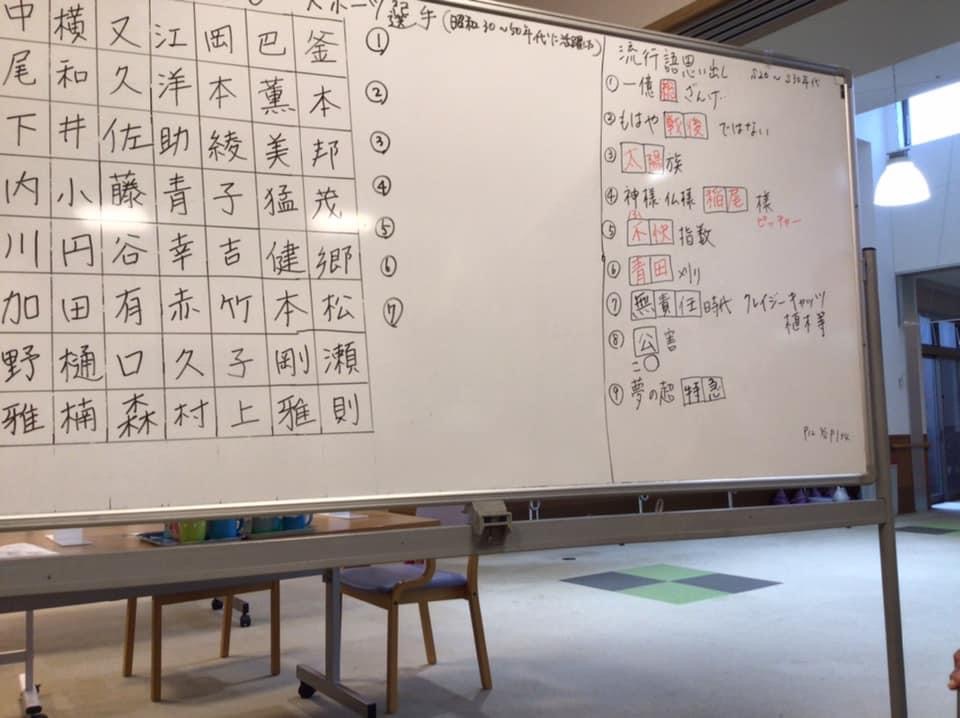 スポーツ選手(昭和30〜50年代に活躍した)
中横又江岡巴釜
尾和久洋本薫本
下井佐助綾美邦
内小藤青子猛茂
川円谷幸吉健郷
加田有赤竹本松
野樋口久子剛瀬
雅楠森村上雅則
①
②
③
④
⑤
⑥
⑦
流行語思い出し S20〜S30年代
①一億総ざんげ
②もはや戦後ではない
③太陽族
④神様仏様稲尾様
ピッチャー
⑤不快指数
⑥青田刈り
⑦無責任時代 クレイジーキャッツ
植木等
⑧公害
こ○
⑨夢の超特急